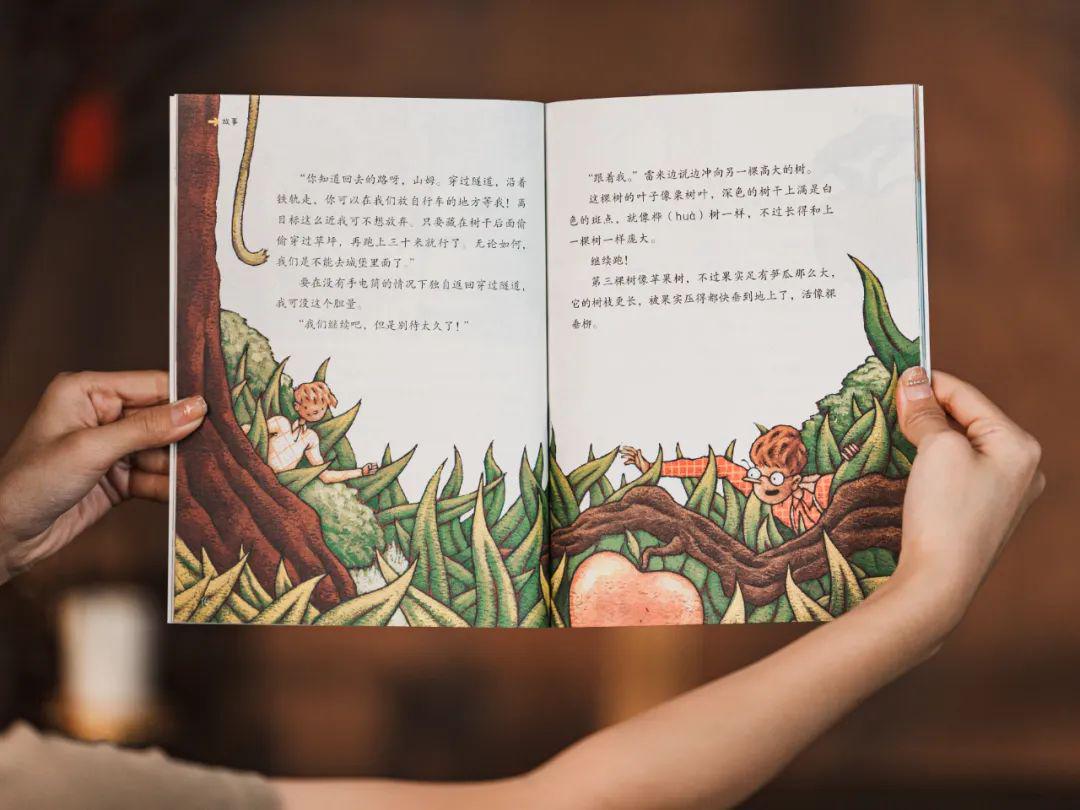 故事
“你知道回去的路呀，山姆。穿过隧道，沿着
铁轨走，你可以在我们放自行车的地方等我！离
目标这么近我可不想放弃。只要藏在树干后面偷
偷穿过草坪，再跑上三十来就行了。无论如何，
我们是不能去城堡里面了。”
要在没有手电筒的情况下独自返回穿过隧道，
我可没这个胆量。
“我们继续吧，但是别待太久了！”
“跟着我。”雷米边说边冲向另一棵高大的树。
这棵树的叶子像栗树叶，深色的树干上满是白
色的斑点，就像桦（huà）树一样，不过长得和上
一棵树一样庞大。
继续跑！
第三棵树像苹果树，不过果实足有笋瓜那么大，
它的树枝更长，被果实压得都快垂到地上了，活像棵
垂柳。